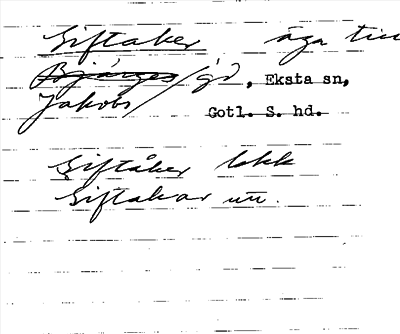 Giftaker äga till
Bjärges/gd, Eksta sn,
Jakobs/
Gotl. S. hd.
Giftåker ekk
Giftakar un.